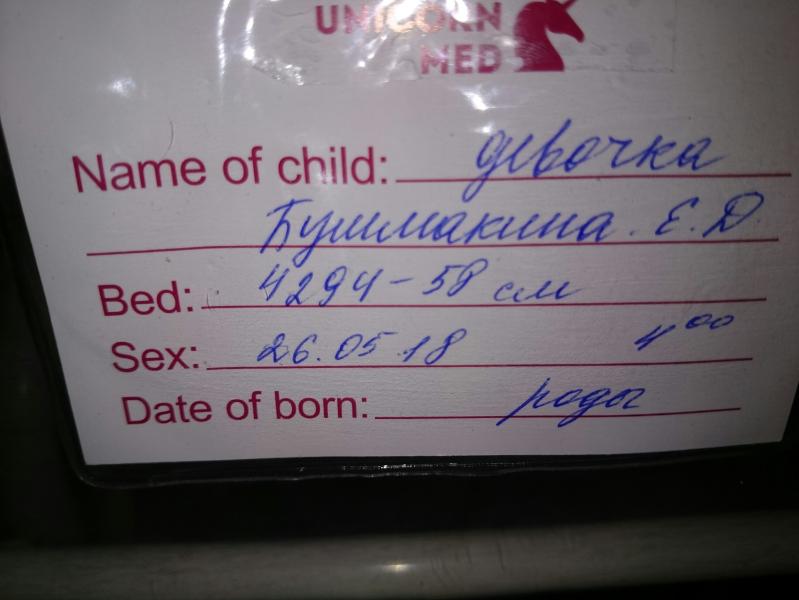 UNICORN
MED
Name of child: девочка
Бушмакина. Е.Д
Bed: 4294-58 см
Sex: 26.05.18 4 00
Date of born: роды